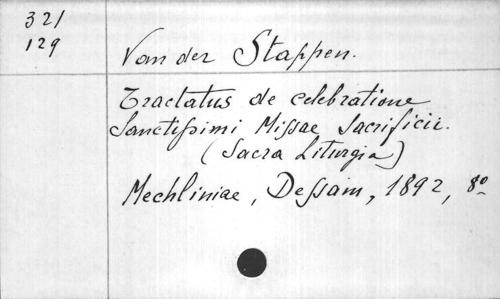 321
129
Van der Stappen.
Tractatus de celebratione
Sanctissimi Missae Sacrificii.
(Sacra Liturgia)
Mechliniae, Dessain, 1892, 8º